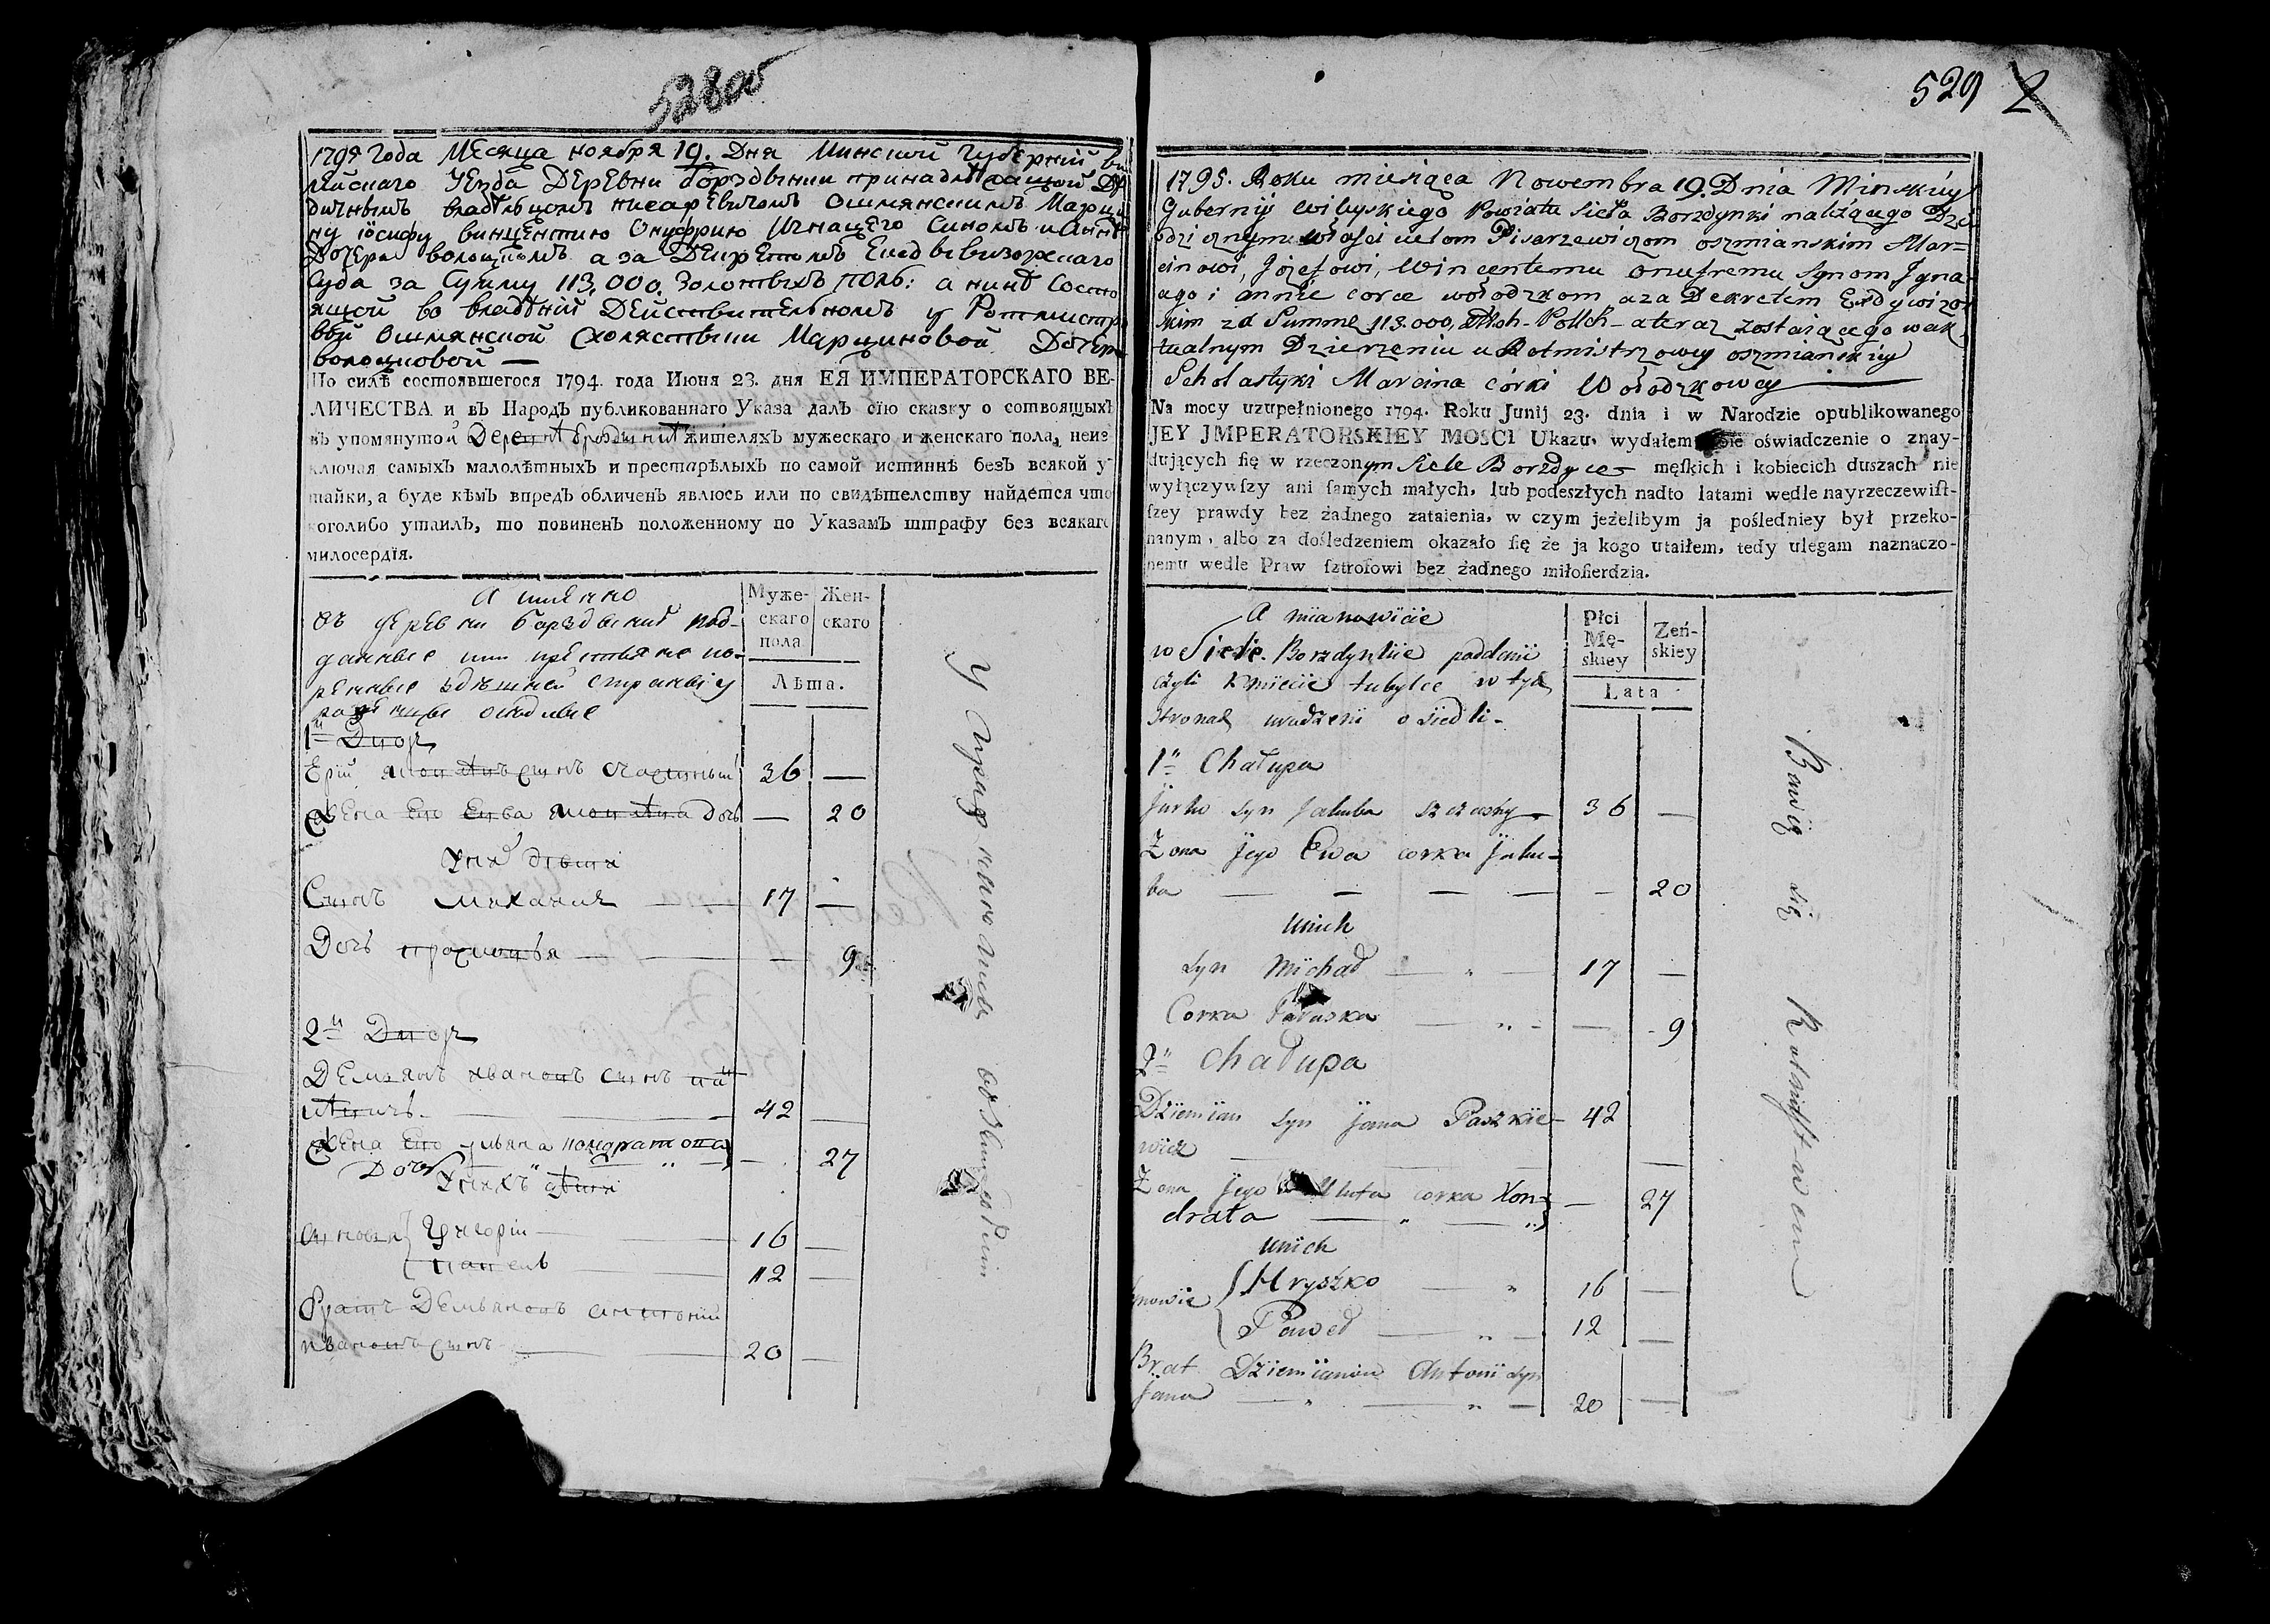 528об
1795 Года Месяца ноября 19. Дня Минской Губернии Ви
лейскаго Уезда Деревни Борздынки принадлежащой Дѣ
дичнымъ владѣльцомъ писаревичомъ Ошмянскимъ Марци
ну іосифу винцентию Онуфрию Игнацего Синомъ и Аннѣ
Дочера волоцкомъ а за Декретомъ Екздевизорскаго
Суда за Сумму 113,000 Золотыхъ поль: а нинѣ Состо
ящой во владѣній Действителномъ у Ротмистро
вой Ошмянской Схолястыки Марциновой Дочери
волоцковой —
По силѣ состоявшегося 1794. года Июня 23. дня ЕЯ ИМПЕРАТОРСКАГО ВЕ-
ЛИЧЕСТВА и въ Народъ публикованнаго Указа далъ сїю сказку о сотвоящыхъ
въ упомянутой Деревнѣ Борздынкѣ жителяхъ мужескаго и женскаго пола, неиз
ключая самыхъ малолѣтныхъ и престарѣлыхъ по самой истиннѣ безъ всякой у
тайки, а буде кѣмъ впредъ обличенъ явлюсь или по свидѣтелству найдется что
коголибо утаилъ, то повиненъ положенному по Указамъ штрафу без всякаго
милосердїя.
А имянно
въ деревни Борздынкѣ под-
данные или крестьяне ко-
ренные здѣшней страны у
рожѣнцы оседлые
Муже-
скаго
пола
Жен-
скаго
Лѣта.
1й Двор
Ерій яковлевъ сынъ счасный 36 —
Жена Его Евва яковлева дочь — 20
У нихъ дѣти
Сынъ Михаилъ 17 —
Дочь — 9
2й Двор
Демьянъ иванов сынъ паш
кевичъ 42 —
Жена Его ульяна кондратова
Дочь — 27
У нихъ дѣти
сыновья Григорій 16 —
павелъ 12 —
Братъ Демьяновъ антоній
ивановъ сынъ 20 —
529 2
1795. Roku miesiąca Nowembra 19. Dnia Minskiey
Gubernij Wileyskiego Powiatu Sieła Borzdynki nalżącego Dzie
dzicznym właścicielom Pisarzewiczom oszmianskim Mar=
cinowi, Józefowi, Wincentemu onufremu synom Jgna-
cego i annie corce wołodzkom, a za Dekretem Exdywizor
skim za Summę 113.000, Złłch - Pollch - a teraz zostaiącego w ak
tualnym Dzierżeniu u Rotmistrzowey oszmiańskiey
Scholastyki Marcina córki Wołodzkowey
Na mocy uzupełnionego 1794. Roku Junij 23. dnia i w Narodzie opublikowanego
JEY JMPERATORSKIEY MOSCI Ukazu, wydałem oświadczenie o znay-
dujących się w rzeczonym Siele Borzdyce męskich i kobiecich duszach nie
wyłączywszy ani samych małych, lub podeszłych nadto latami wedle nayrzeczewist-
szey prawdy bez żadnego zataienia, w czym jeżelibym ja pośledniey był przeko-
nanym, albo za dośledzeniem okazało się że ja kogo utaiłem, tedy ulegam naznaczo-
nemu wedle Praw sztrofowi bez żadnego miłosierdzia.
A mianowicie
w Siele Borzdynkie poddani
czyli Kmiecie tubylce w tych
stronach urodzeni osiedli-
Płci
Mę-
skiey
Zeń-
skiey
Lata
1a Chałupa
Jurko syn Jakuba szczasny 36 —
Zona Jego Ewa corka Jaku-
ba — 20
unich
syn Michał 17 —
Corka Paraska — 9
2a Chałupa
Dziemian syn Jana Paszkie- 42
wicz —
Zona Jego Uluta corka Kon- — 27
drata
unich
synowie Hryszko 16 —
Paweł 12 —
Brat Dziemianow Antoni syn
Jana 20 —
Bawią się Rolnictwem